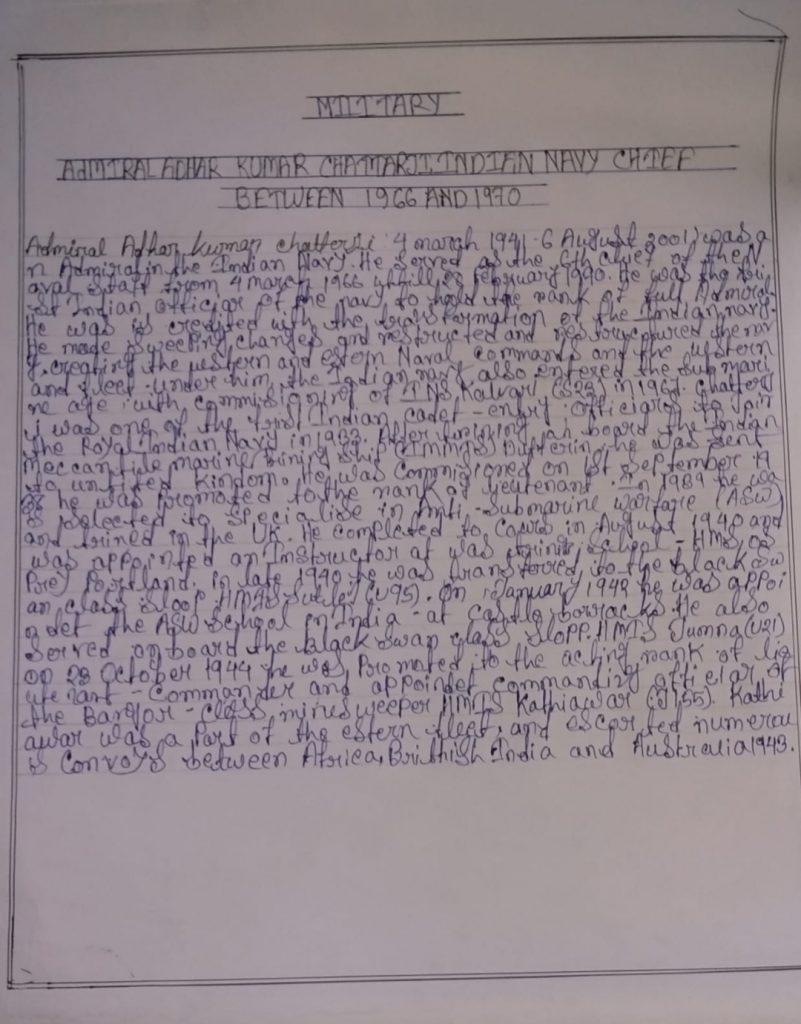 MILITARY
ADMIRAL ADHAR KUMAR CHATTARJI INDIAN NAVY CHIEF
BETWEEN 1966 AND 1970
Admiral Adhar kumar chatterji 4 march 1941-6 August 2001) was a
n Admiral in the Indian Navy. He served as the 6th chief of the N
aval staff from 4 march 1966 28 February 1990. He was the
Indian officiar of the navy to hold the rank of full Admiral.
He was is credited with the transformation of the Indian navy.
He made sweeping changes and and the
creating the western and estern Naval commands and the western
and fleet under him, the Indian navy also entered the submari
ne age with commissioning of INS Kalvari (S23) in 1967. chatterj
i was one of the first Indian cadet-entry officiars to join
the Royal Indian Navy in 1933. After training an board the Indian
marine ship Dufferin, he was sent
to Kindom. He was commisioned on 1st September 19
he was promoted to the rank of lieutenant. In 1939 he wa
s to specialise in Anti-submarine warfare (ASW)
and trined in the UK. He completed to cours in August 1940 and
was appointed an instructor at was School - HMS Os
Prey Portland. in late 1940 he was transferred to the black sw
an class sloop HMIS (U95). On January 1942 he was appoi
the ASW School in India - at castle borracks. He also
served on board the black swan class HMIS Jumna (U21)
on 28 October 1944 he was promoted to the acting rank of lie
utenant - Commander and appointet commanding officiar of
the Bangor - class minesweeper HMIS Kathiawar (J155). Kathi
awar was a part of the estern fleet, and escorted numerou
s convoys between Africa, British India and Australia 1943.